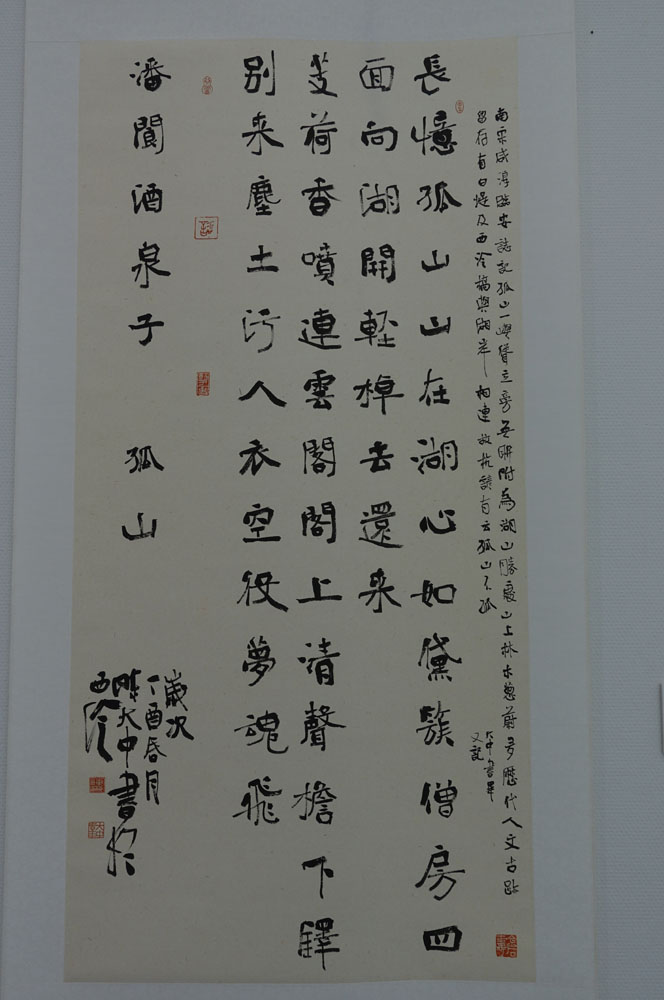 南宋咸淳臨安誌記孤山一嶼聳立旁無聯附為湖山勝處山上林木蔥蔚多歷代人文古跡
留存有白堤及西泠橋與湖岸相連故杭諺有云孤山不孤
大中書畢
又記
長憶孤山山在湖心如黛簇僧房四
面向湖開輕棹去還来
芰荷香噴連雲閣閣上清聲檐下鐸
别来塵土污人衣空役夢魂飛
潘閬酒泉子 孤山
歲次
丁酉春月
大中書於
西泠